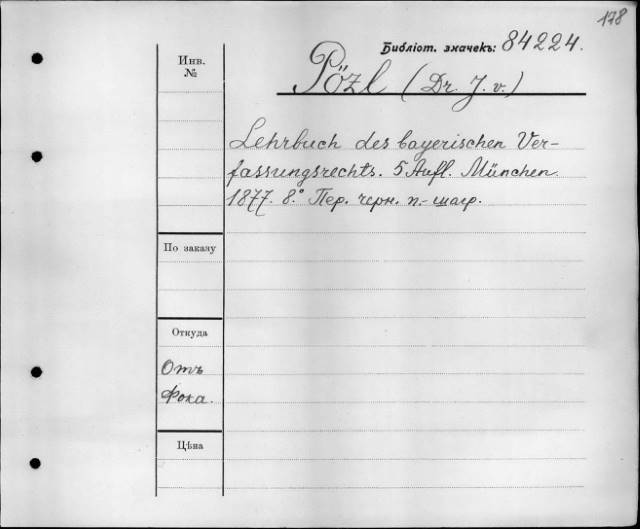 178
Библіот. значекъ: 84224.
Инв.
№
Pözl (Dr. J. v.)
Lehrbuch des bayerischen Ver-
fassungsrechts. 5 Aufl. München
1877. 8.° Пер. черн. п.-шагр.
По заказу
Откуда
Отъ
Фока.
Цѣна